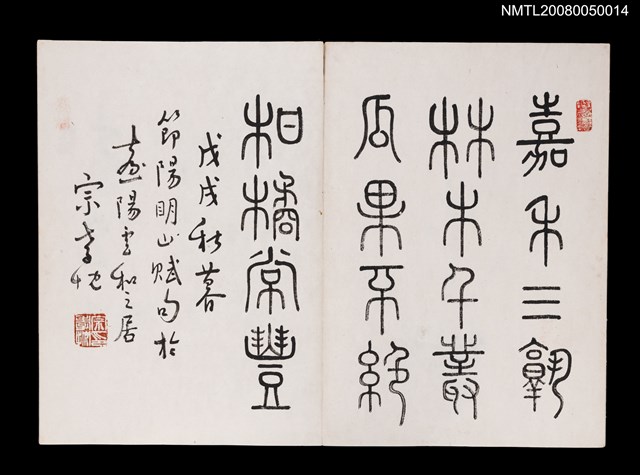 NMTL20080050014
嘉禾三孰
林木千叢
瓜果不絕
柑橘常豐
戊戌秋暮
節陽明山賦句於
臺陽雲和之居
宗孝忱